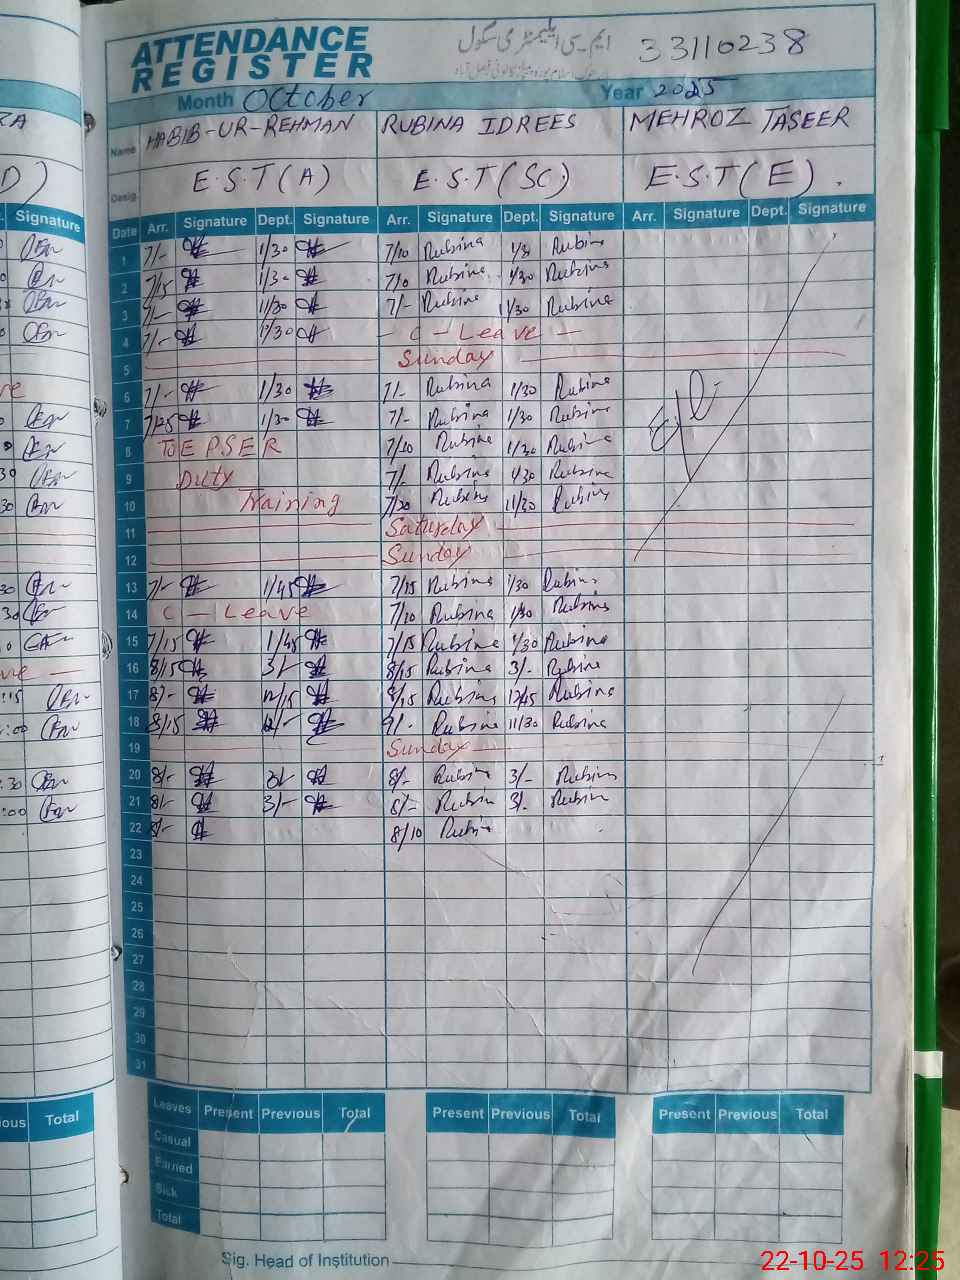 ATTENDANCE
REGISTER
ایم سی ایلیمنٹری سکول
33110238
Month October Year 2025
Name HABIB-UR-REHMAN RUBINA IDREES MEHROZ TASEER
Desig. E.S.T(A) E.S.T(SC) E.S.T(E).
Signature Date Arr. Signature Dept. Signature Arr. Signature Dept. Signature Arr. Signature Dept. Signature
1 7/- 1/30 7/10 Rubina 1/30 Rubina
2 7/15 1/30 7/10 Rubina 1/30 Rubina
3 7/- 11/30 7/- Rubina 11/30 Rubina
4 7/- 1/30 - C - Leave -
5 Sunday
6 7/- 1/30 7/- Rubina 1/30 Rubina
7 7/25 1/30 7/- Rubina 1/30 Rubina
8 To E PSER 7/10 Rubina 1/30 Rubina
9 Duty 7/- Rubina 1/30 Rubina
10 Training 7/20 Rubina 11/30 Rubina
11 Saturday
12 Sunday
13 7/- 1/45 7/15 Rubina 1/30 Rubina
14 C - Leave 7/10 Rubina 1/30 Rubina
15 7/15 1/45 7/15 Rubina 1/30 Rubina
16 8/15 3/- 8/15 Rubina 3/- Rubina
17 8/- 12/15 8/15 Rubina 12/45 Rubina
18 8/15 12/- 9/- Rubina 11/30 Rubina
19 Sunday
20 8/- 3/- 8/- Rubina 3/- Rubina
21 8/- 3/- 8/- Rubina 3/- Rubina
22 8/- 8/10 Rubina
23
24
25
26
27
28
29
30
31
Total Leaves Present Previous Total Present Previous Total Present Previous Total
Casual
Earned
Sick
Total
Sig. Head of Institution
22-10-25 12:25